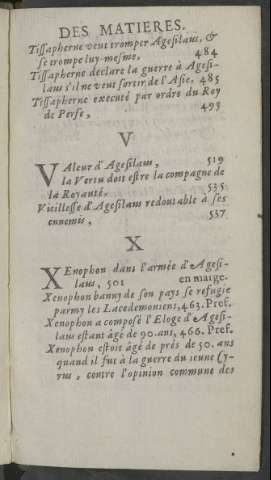 DES MATIERES.
Tissapherne veut tromper Agesilaus, &
se trompe luy-mesme, 484
Tissapherne declare la guerre à Agesi-
laus s'il ne veut sortir de l'Asie, 485
Tissapherne executé par ordre du Roy
de Perse, 495
V
VAleur d'Agesilaus, 519
la Vertu doit estre la compagne de
la Royauté, 535.
Vieillesse d'Agesilaus redoutable à ses
ennemis, 537.
X
XEnophon dans l'armée d'Agesi-
laus, 501 en marge.
Xenophon banny de son pays se refugie
parmy les Lacedemoniens, 463. Pref.
Xenophon a composé l'Eloge d'Agesi-
laus estant âgé de 90. ans, 466. Pref.
Xenophon estoit âgé de prés de 50. ans
quand il fut à la guerre du jeune Cy-
rus, contre l'opinion commune des